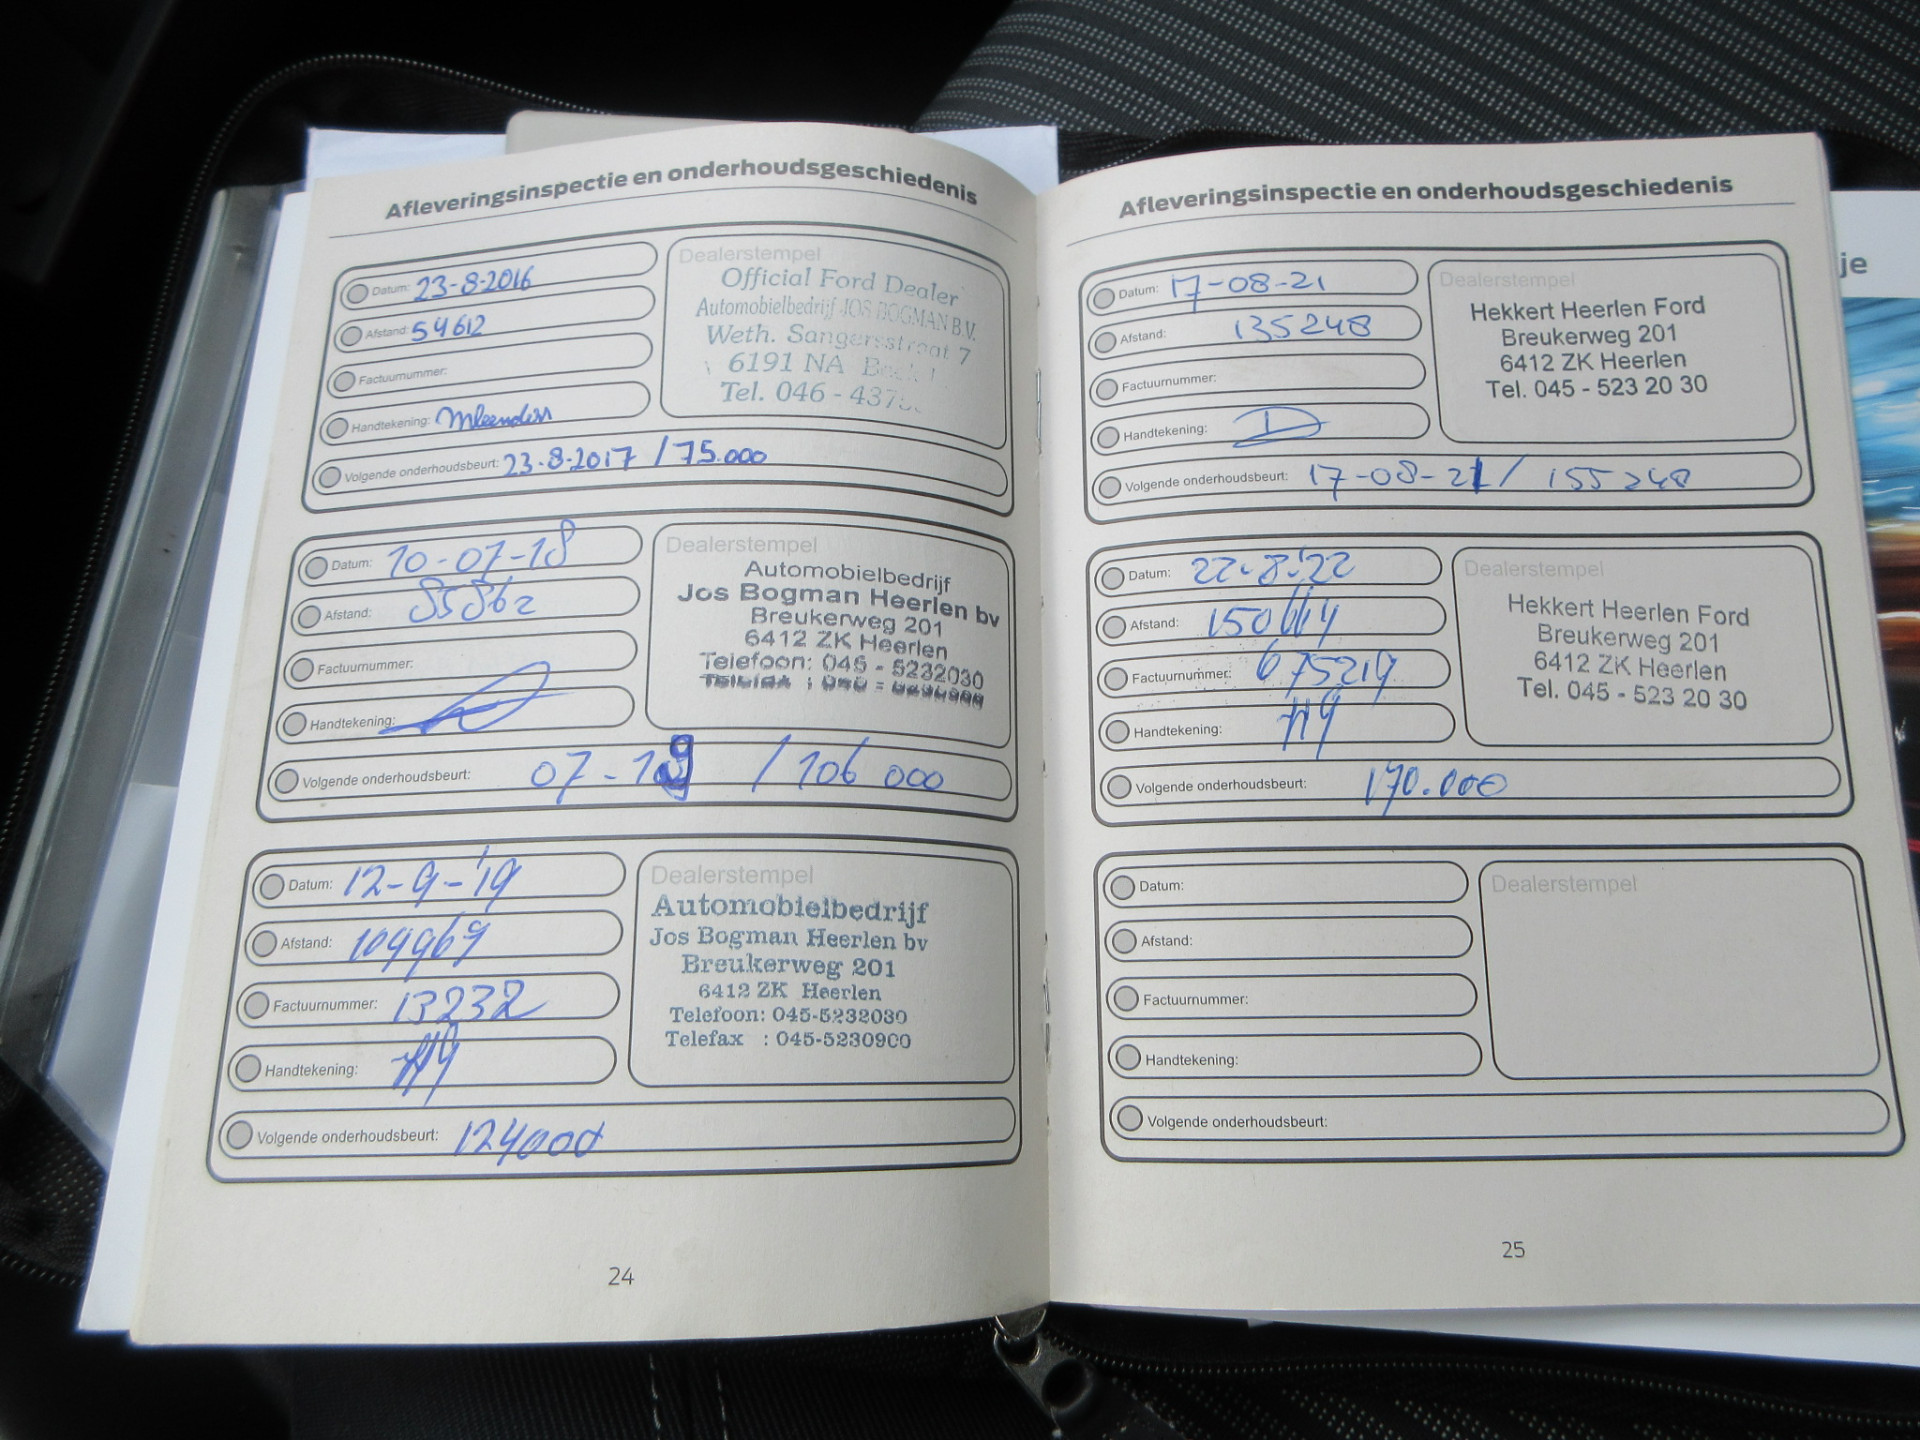 Afleveringsinspectie en onderhoudsgeschiedenis
Datum: 23-8-2016
Afstand: 54612
Factuurnummer:
Handtekening:
Volgende onderhoudsbeurt: 23-8-2017 / 75.000
Dealerstempel
Official Ford Dealer
Automobielbedrijf JOS BOGMAN B.V.
Weth. Sangersstraat 7
6191 NA
Tel. 046 - 437
Datum: 10-07-18
Afstand: 85862
Factuurnummer:
Handtekening:
Volgende onderhoudsbeurt: 07-19 / 106 000
Dealerstempel
Automobielbedrijf
Jos Bogman Heerlen bv
Breukerweg 201
6412 ZK Heerlen
Telefoon: 045 - 5232030
Datum: 12-9-'19
Afstand: 104969
Factuurnummer: 13232
Handtekening:
Volgende onderhoudsbeurt: 124000
Dealerstempel
Automobielbedrijf
Jos Bogman Heerlen bv
Breukerweg 201
6412 ZK Heerlen
Telefoon: 045-5232030
Telefax : 045-5230900
24
Afleveringsinspectie en onderhoudsgeschiedenis
Datum: 17-08-21
Afstand: 135248
Factuurnummer:
Handtekening:
Volgende onderhoudsbeurt: 17-08-21 / 155248
Dealerstempel
Hekkert Heerlen Ford
Breukerweg 201
6412 ZK Heerlen
Tel. 045 - 523 20 30
Datum: 22-8-'22
Afstand:
Factuurnummer: 675214
Handtekening:
Volgende onderhoudsbeurt: 170.000
Dealerstempel
Hekkert Heerlen Ford
Breukerweg 201
6412 ZK Heerlen
Tel. 045 - 523 20 30
Datum:
Afstand:
Factuurnummer:
Handtekening:
Volgende onderhoudsbeurt:
Dealerstempel
25
je